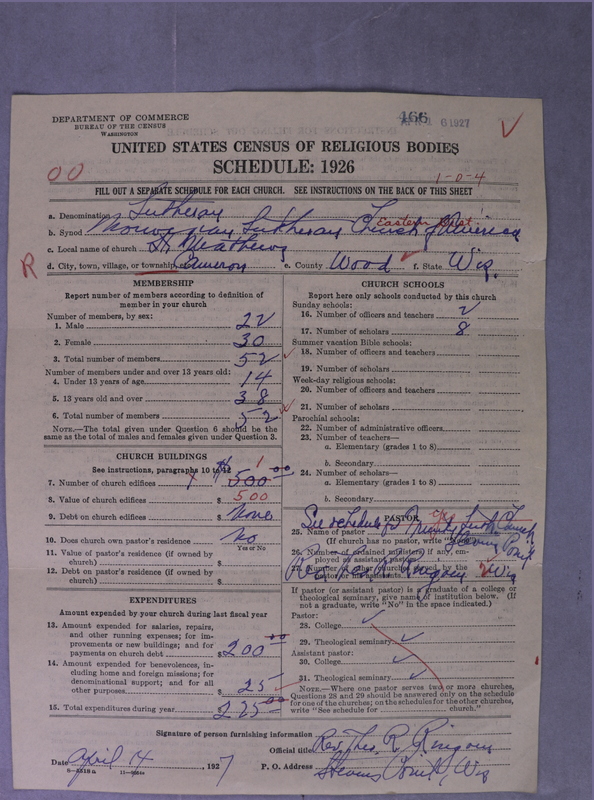 DEPARTMENT OF COMMERCE
BUREAU OF THE CENSUS
WASHINGTON
466
6 1927
UNITED STATES CENSUS OF RELIGIOUS BODIES
SCHEDULE: 1926
00
1-0-4
FILL OUT A SEPARATE SCHEDULE FOR EACH CHURCH. SEE INSTRUCTIONS ON THE BACK OF THIS SHEET
a. Denomination Lutheran
Eastern Dist.
b. Synod Norwegian Lutheran Church of America
c. Local name of church St. Mathews
R
d. City, town, village, or township Cameron e. County Wood f. State Wis.
MEMBERSHIP
Report number of members according to definition of member in your church
Number of members, by sex:
1. Male 22
2. Female 30
3. Total number of members 52
Number of members under and over 13 years old:
4. Under 13 years of age 14
5. 13 years old and over 38
6. Total number of members 52
NOTE.—The total given under Question 6 should be the same as the total of males and females given under Question 3.
CHURCH BUILDINGS
See instructions, paragraphs 10 to 12
7. Number of church edifices 1 $500.00
8. Value of church edifices $ 500
9. Debt on church edifices $ None
10. Does church own pastor's residence? No
Yes or No
11. Value of pastor's residence (if owned by church) $
12. Debt on pastor's residence (if owned by church) $
EXPENDITURES
Amount expended by your church during last fiscal year
13. Amount expended for salaries, repairs, and other running expenses; for improvements or new buildings; and for payments on church debt $ 200.00
14. Amount expended for benevolences, including home and foreign missions; for denominational support; and for all other purposes $ 25
15. Total expenditures during year $ 225.00
CHURCH SCHOOLS
Report here only schools conducted by this church
Sunday schools:
16. Number of officers and teachers 2
17. Number of scholars 8
Summer vacation Bible schools:
18. Number of officers and teachers
19. Number of scholars
Week-day religious schools:
20. Number of officers and teachers
21. Number of scholars
Parochial schools:
22. Number of administrative officers
23. Number of teachers—
a. Elementary (grades 1 to 8)
b. Secondary
24. Number of scholars—
a. Elementary (grades 1 to 8)
b. Secondary
PASTOR
See schedule for Luth Church
25. Name of pastor
(If church has no pastor, write
26. Number of ordained ministers, if any, employed
27. Number of other churches served by the pastor or his assistants
Wis
If pastor (or assistant pastor) is a graduate of a college or theological seminary, give name of institution below. (If not a graduate, write "No" in the space indicated.)
Pastor:
28. College
29. Theological seminary
Assistant pastor:
30. College
31. Theological seminary
NOTE.—Where one pastor serves two or more churches, Questions 28 and 29 should be answered only on the schedule for one of the churches; on the schedules for the other churches, write "See schedule for church."
Signature of person furnishing information Rev. Theo. R. Ringoen
Official title
Date April 14, 1927 P. O. Address Stevens Point, Wis